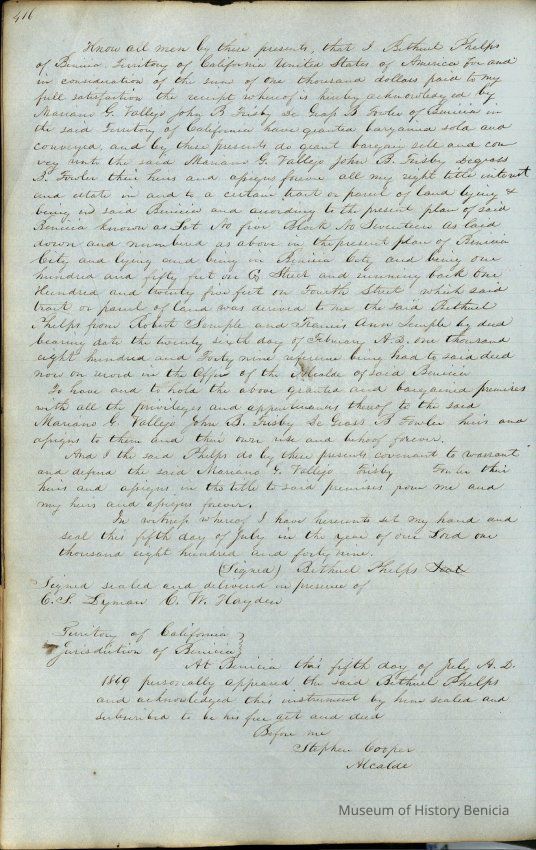 416
Know all men by these presents, that I Bethuel Phelps
of Benicia Territory of California United States of America for and
in consideration of the sum of one thousand dollars paid to my
full satisfaction the receipt whereof is hereby acknowledged by
Mariano G. Vallejo John B Frisby De Gras B Fowler of Benicia in
the said Territory of California have granted bargained sold and
conveyed and by these presents do grant bargain sell and con
vey unto the said Mariano G. Vallejo John B. Frisby Degrass
B. Fowler their heirs and assigns forever all my right title interest
and estate in and to a certain tract or parcel of land lying &
being in said Benicia and according to the present plan of said
Benicia known as Lot No five Block No Seventeen as laid
down and numbered as above in the present plan of Benicia
City and lying and being in Benicia City and being one
hundred and fifty feet on G Street and running back One
Hundred and twenty five feet on Fourth Street which said
tract or parcel of land was derived to me the said Bethuel
Phelps from Robert Semple and Francis Ann Semple by deed
bearing date the twenty sixth day of February A.D. one thousand
eight hundred and Forty nine reference being had to said deed
now on record in the Office of the Alcalde of said Benicia
To have and to hold the above granted and bargained premises
with all the privileges and appurtenances thereof to the said
Mariano G. Vallejo John B. Frisby De Grass B Fowler heirs and
assigns to them and their own use and behoof forever.
And I the said Phelps do by these presents covenant to warrant
and defend the said Mariano G. Vallejo Frisby Fowler their
heirs and assigns in the title to said premises from me and
my heirs and assigns forever.
In witness whereof I have hereunto set my hand and
seal this fifth day of July in the year of our Lord one
thousand eight hundred and forty nine.
(Signed) Bethuel Phelps Seal
Signed sealed and delivered in presence of
C. S. Lyman C. W. Hayden
Territory of California }
Jurisdiction of Benicia }
At Benicia this fifth day of July A.D.
1849 personally appeared the said Bethuel Phelps
and acknowledged this instrument by him sealed and
subscribed to be his free act and deed
Before me
Stephen Cooper
Alcalde
Museum of History Benicia